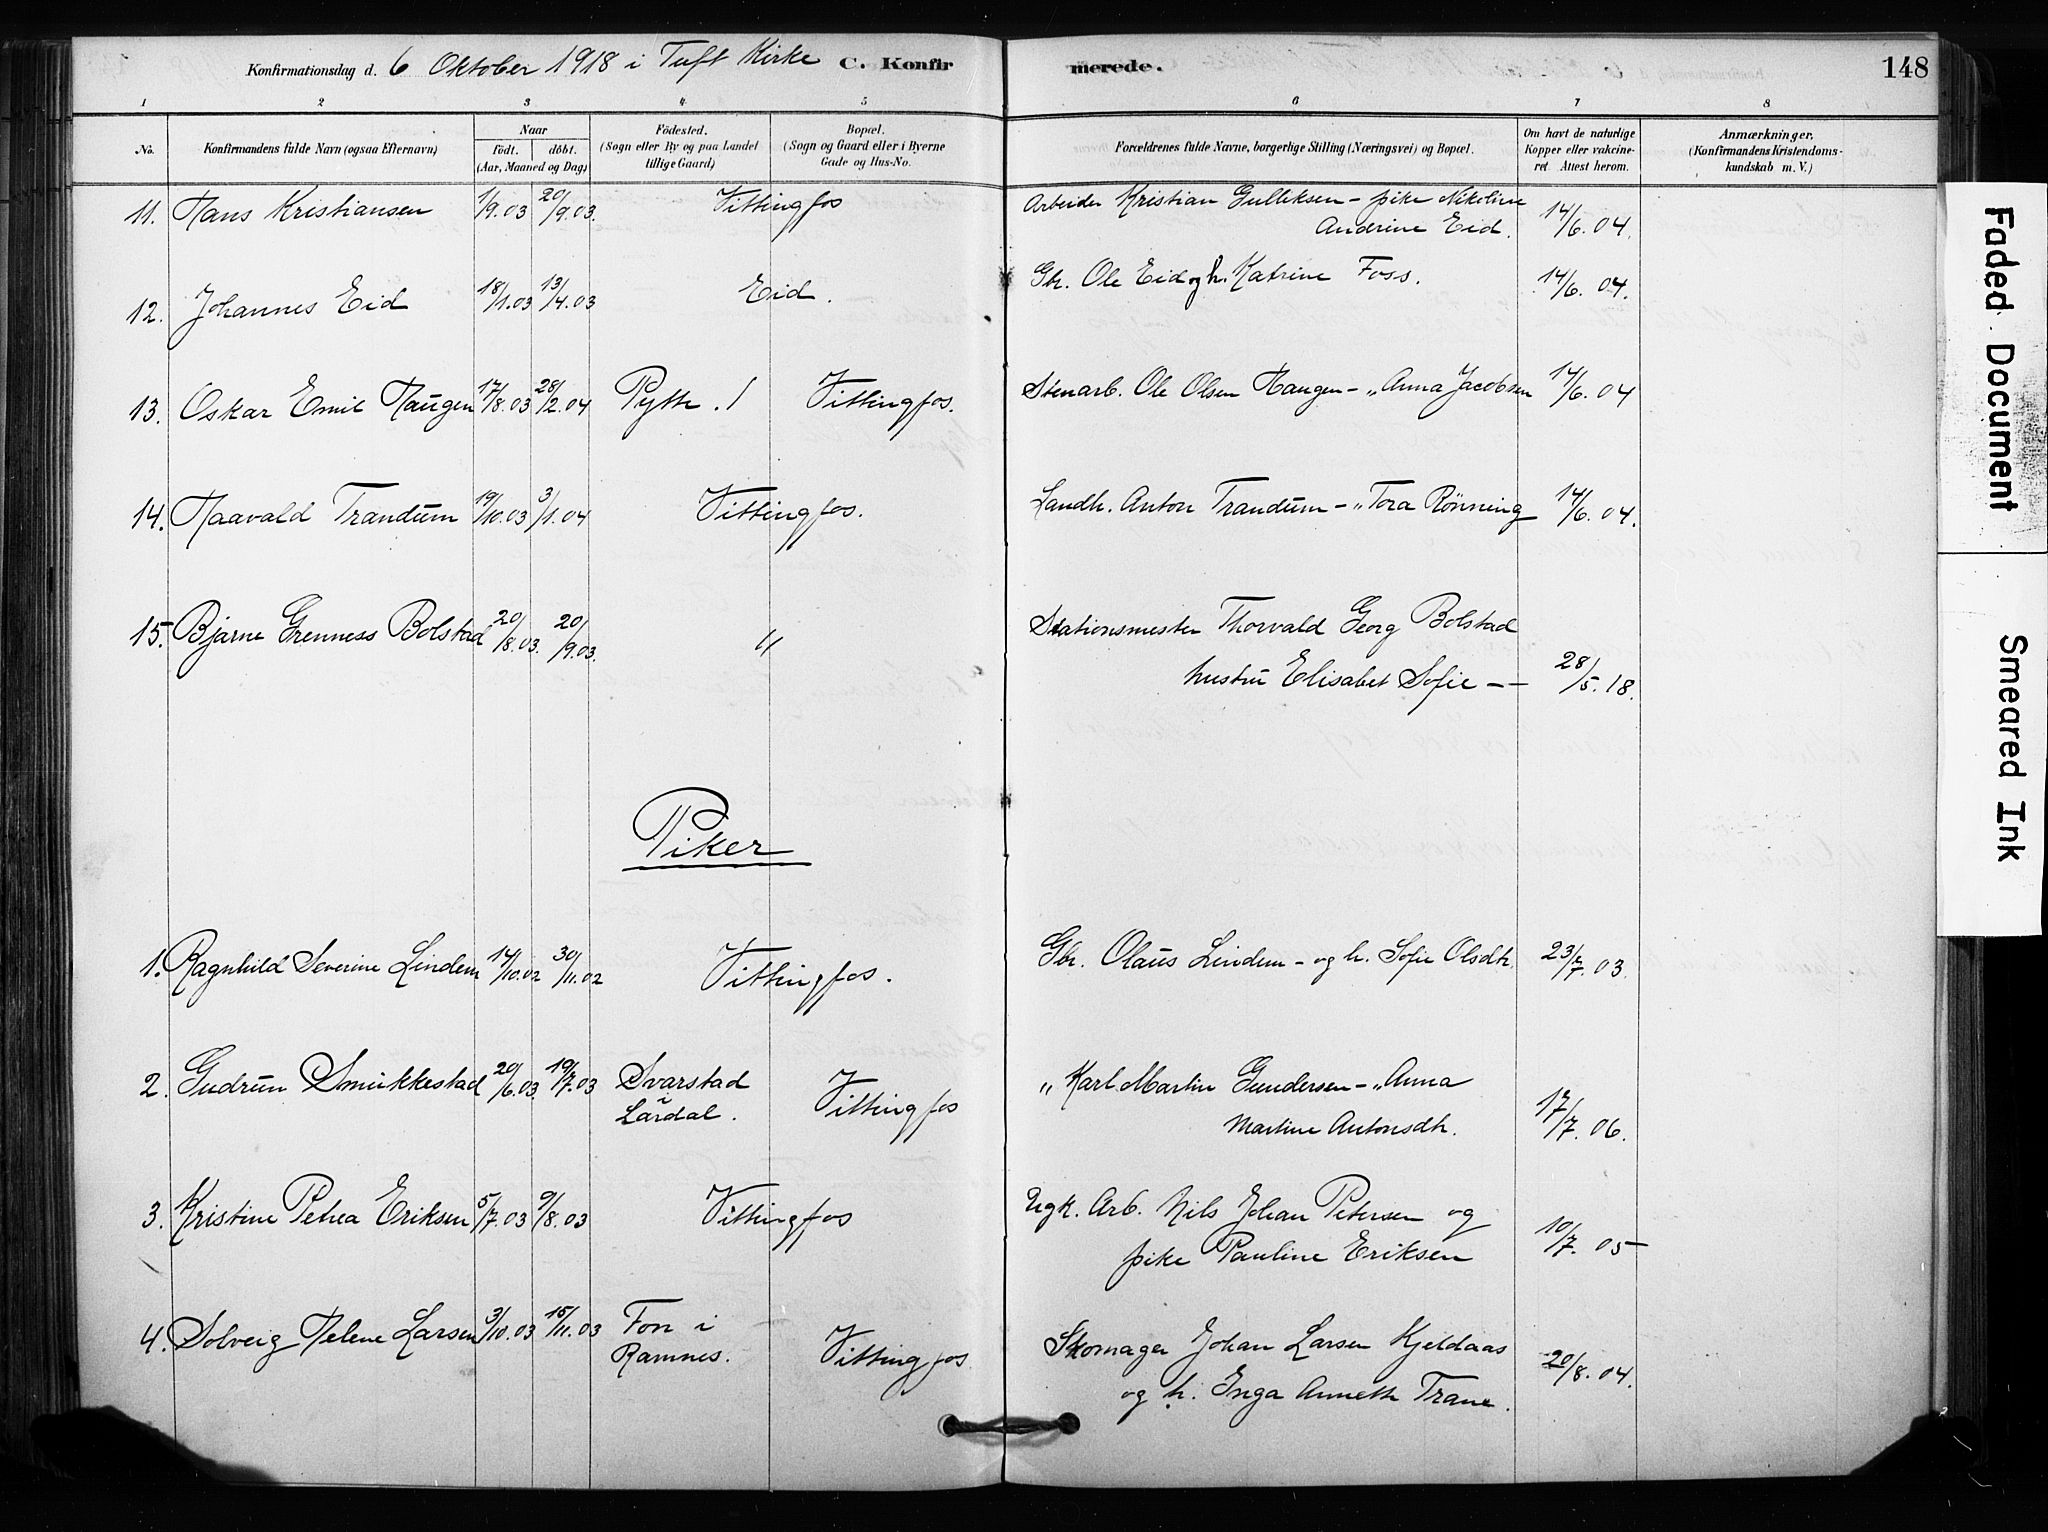 Konfirmationsdag d. 6 Oktober 1918 i Tuft Kirke C. Konfir merede. 148
1 2 3 4 5 6 7 8
No.
Konfirmandens fulde Navn (ogsaa Efternavn)
Naar
Födt. döbt.
(Aar, Maaned og Dag)
Födested.
(Sogn eller By og paa Landet
tillige Gaard)
Bopæl.
(Sogn og Gaard eller i Byerne
Gade og Hus-No.
Forældrenes fulde Navne, borgerlige Stilling (Næringsvei) og Bopæl.
Om havt de naturlige
Kopper eller vakcine-
ret Attest herom.
Anmærkninger.
(Konfirmandens Kristendoms-
kundskab m. V.)
11. Hans Kristiansen 1/9.03 20/9.03. Vittingfos Arbeider Kristian Gulliksen – pike Nikoline 14/6.04.
Andrine Eid.
12. Johannes Eid 18/1.03 13/4.03 Eid. Gbr. Ole Eid og h. Katrine Foss. 14/6.04.
13. Oskar Emil Haugen 17/8.03 28/2.04 Pytte./ Vittingfos. Stenarb. Ole Olsen Haugen – „ Anna Jacobsen 14/6.04
14. Haavald Trandum 19/10.03 3/1.04 Vittingfos. Landh. Anton Trandum – „ Tora Rønning 14/6.04.
15. Bjarne Grenness Bolstad 20/8.03. 20/9.03. " Stationsmester Thorvald Georg Bolstad
hustru Elisabet Sofie – – 28/5.18.
Piker
1. Ragnhild Severine Lindem 14/10.02 30/11.02 Vittingfos. Gbr. Olaus Lindem – og h. Sofie Olsdtr. 23/7.03.
2. Gudrun Smukkestad 20/6.03. 19/7.03 Svarstad i Lardal. Vittingfos „ Karl Martin Gundersen – „ Anna
Martine Antonsdtr. 17/7.06.
3. Kristine Petrea Eriksen 5/7.03 9/8.03 Vittingfos Ugk. Arb. Nils Johan Petersen og
pike Pauline Eriksen 10/7.05
4. Solveig Helene Larsen 3/10.03 15/11.03 Fon i
Ramnes. Vittingfos. Skomager Johan Larsen Kjeldaas
og h. Inga Annette Trane. 20/8.04.
Faded Document
Smeared Ink